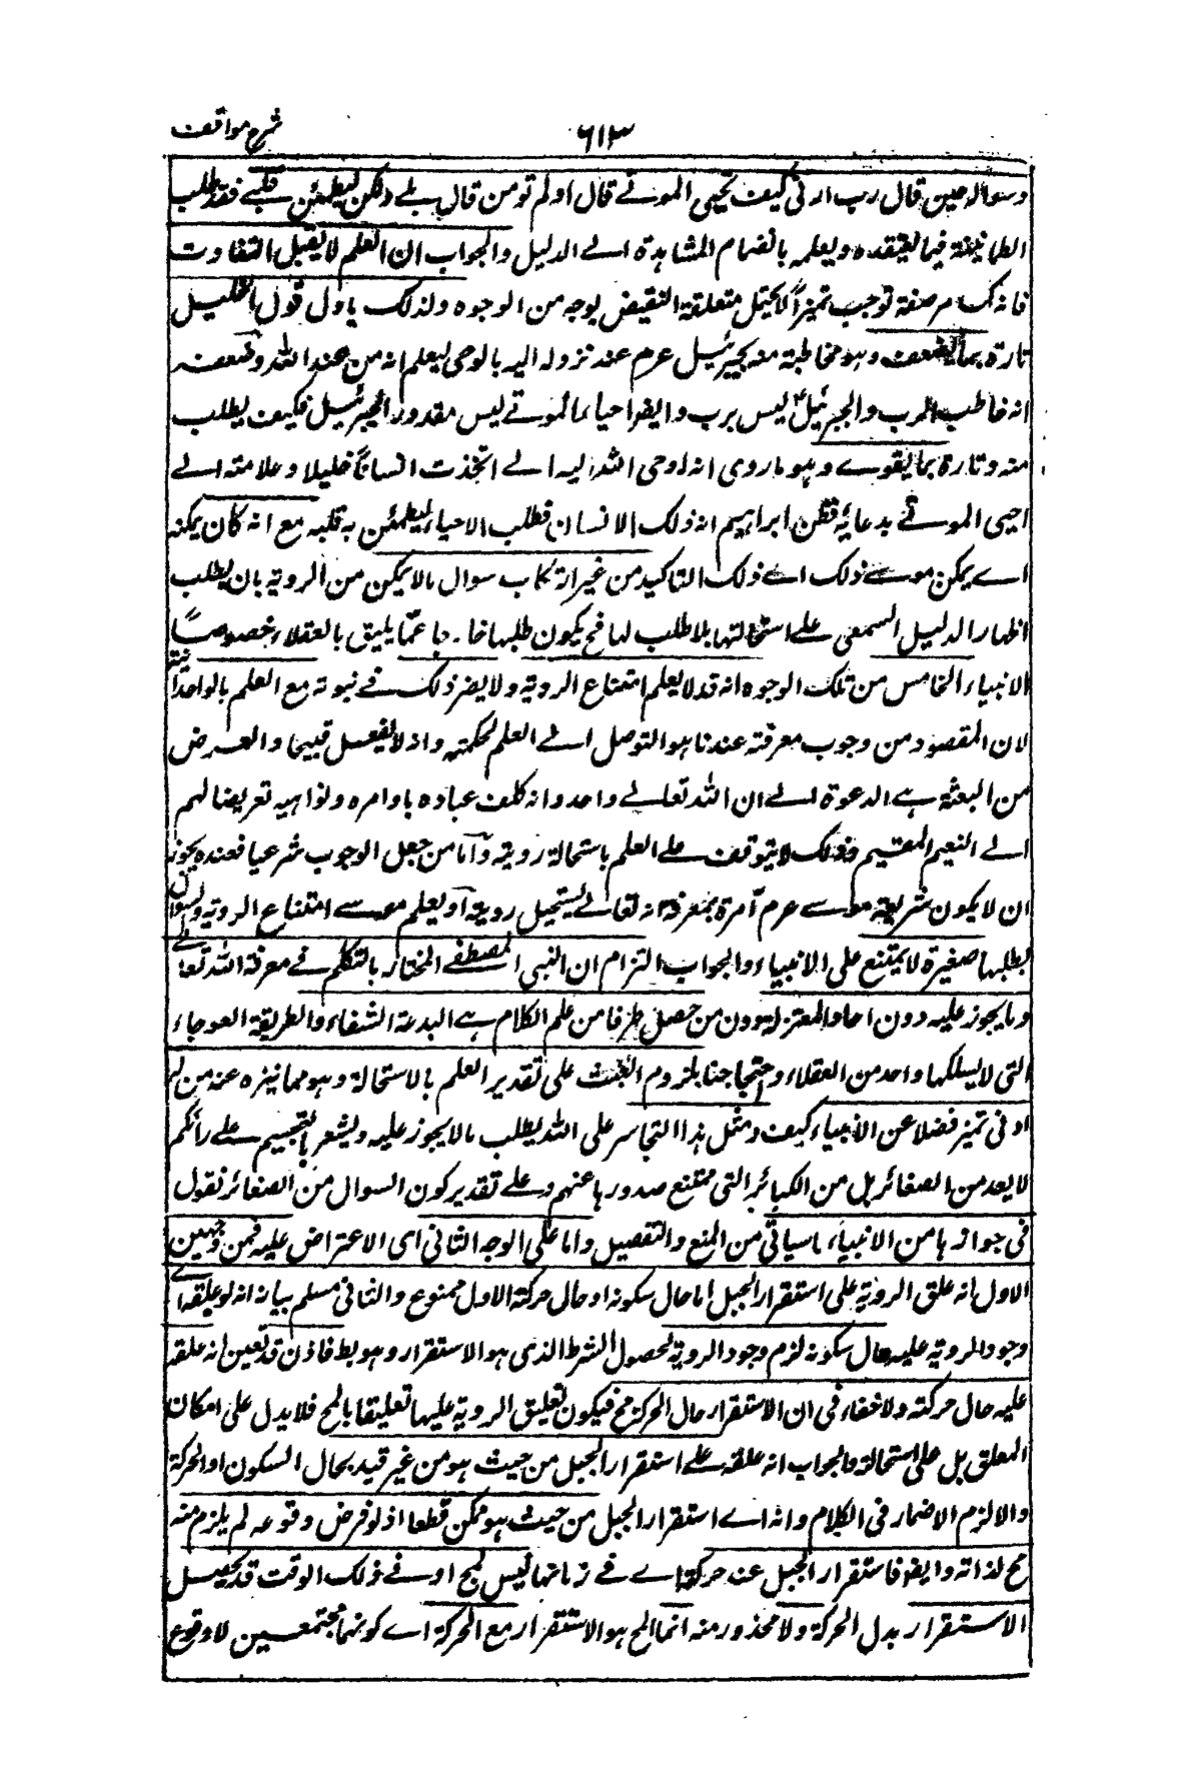 ٦١٣
شرح مواقف
وسواله حين قال رب ارنى كيف تحيى الموتے قال اولم تومن قال بلے ولكن ليطمئن قلبے فقد طلب
الطمانينة فيما يعتقده ويعلمه بانضمام المشاهدة الے الدليل والجواب ان العلم لا يقبل التفاوت
فانه كما مر صفة توجب تميزاً لا يحتمل متعلقه النقيض بوجه من الوجوه ولذلك ياول قول الخليل
تارة بما يضعف وهو مخاطبة منه لجبرئيل عرم عند نزوله اليه بالوحى ليعلم انه من عند الله وضعفه
انه خاطب الرب والجبرئيل ليس برب وايضا احياء الموتے ليس مقدور الجبرئيل فكيف يطلب
منه وتارة بما يقوے وهو ما روى انه اوحى الله اليه الے اتخذت انسانًا خليلا وعلامته الے
احيى الموتے بدعائه فظن ابراهيم انه ذلك الانسان فطلب الاحياء ليطمئن به قلبه مع انه كان يمكنه
اے يمكن موسے ذلك اے ذلك التاكيد من غير ارتكاب سوال ما لا يمكن من الروية بان يطلب
اظهار الدليل السمعى علے استحالتها بلا طلب لها فح يكون طلبها خارجا عمّا يليق بالعقلاء خصوصًا
الانبياء الخامس من تلك الوجوه انه قد لا يعلم امتناع الروية ولا يضر ذلك فے نبوته مع العلم بالوحدانية
لان المقصود من وجوب معرفته عندنا هو التوصل الے العلم بحكمته وانه لا يفعل قبيحا والغرض
من البعثة هے الدعوة الے ان الله تعالے واحد وانه كلف عباده باوامره ونواهيه تعريضا لهم
الے النعيم المقيم وذلك لا يتوقف علے العلم باستحالة رويته وامّا من جعل الوجوب شرعيا فعنده يجوز
ان لا يكون شريعة موسے عرم آمرة بمعرفة انه تعالے يستحيل رويته او يعلم موسے امتناع الروية والسوال
بطلبها صغيرة لا يمتنع على الانبياء والجواب التزام ان النبى المصطفے المختار بالتكلم فے معرفة الله تعالے
وما يجوز عليه دون احاد المعتزلة ودون من حصل طرفا من علم الكلام هے البدعة الشنعاء والطريقة العوجاء
التى لا يسلكها واحد من العقلاء واحتجاجنا بلزوم العبث على تقدير العلم بالاستحالة وهو مما ينزه عنه من له
ادنى تميز فضلا عن الانبياء كيف ومثل هذا التجاسر على الله بطلب ما لا يجوز عليه ويشعر بالتجسيم علے رائكم
لا يعد من الصغائر بل من الكبائر التى ممتنع صدورها عنهم وعلے تقدير كون السوال من الصغائر نقول
فى جوازها من الانبياء ما سياتى من المنع والتفصيل واما على الوجه الثانى اى الاعتراض عليه فمن وجهين
الاول انه علق الروية على استقرار الجبل اما حال سكونه او حال حركته الاول ممنوع والثانى مسلم بيانه انه لو علقه اے
وجود الروية عليه حال سكونه لزم وجود الروية لحصول الشرط الذى هو الاستقرار وهو بط فاذن قد تعين انه علقه
عليه حال حركته ولا خفاء فى ان الاستقرار حال الحركة مح فيكون تعليق الروية عليها تعليقا بالمح فلا يدل على امكان
المعلق بل على استحالته والجواب انه علقه علے استقرار الجبل من حيث هو من غير قيد بحال السكون او الحركة
والا لزم الاضمار فى الكلام وانه اے استقرار الجبل من حيث هو ممكن قطعا اذ لو فرض وقوعه لم يلزم منه
مح لذاته وايضا فاستقرار الجبل عند حركته اے فے زمانها ليس بمح اذ فے ذلك الوقت قد يحصل
الاستقرار بدل الحركة ولا محذور منه انما المح هو الاستقرار مع الحركة اے كونهما مجتمعين لا وقوع